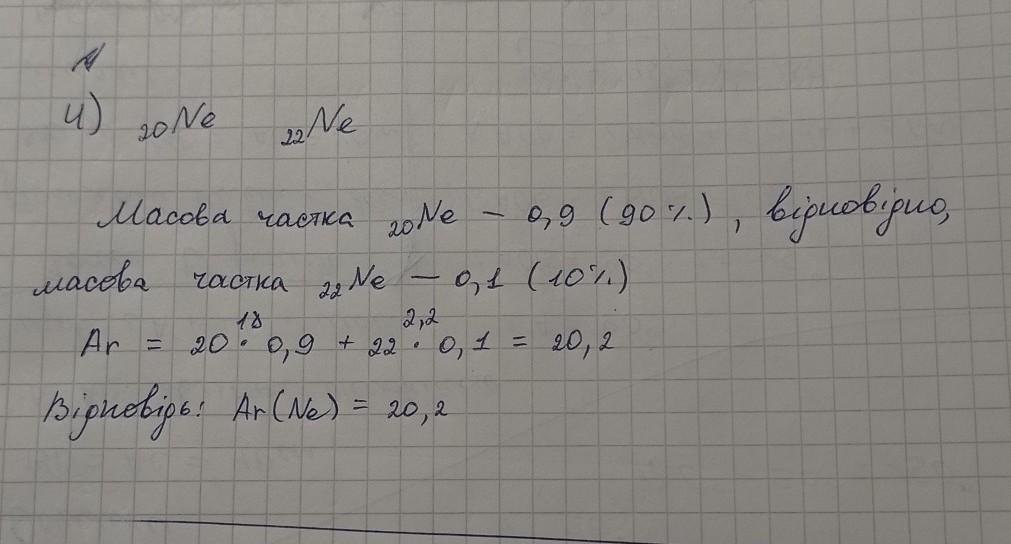 4) ₂₀Ne ₂₂Ne
Масова частка ₂₀Ne – 0,9 (90%), відповідно,
масова частка ₂₂Ne – 0,1 (10%)
18 2,2
Ar = 20 · 0,9 + 22 · 0,1 = 20,2
Відповідь: Ar(Ne) = 20,2